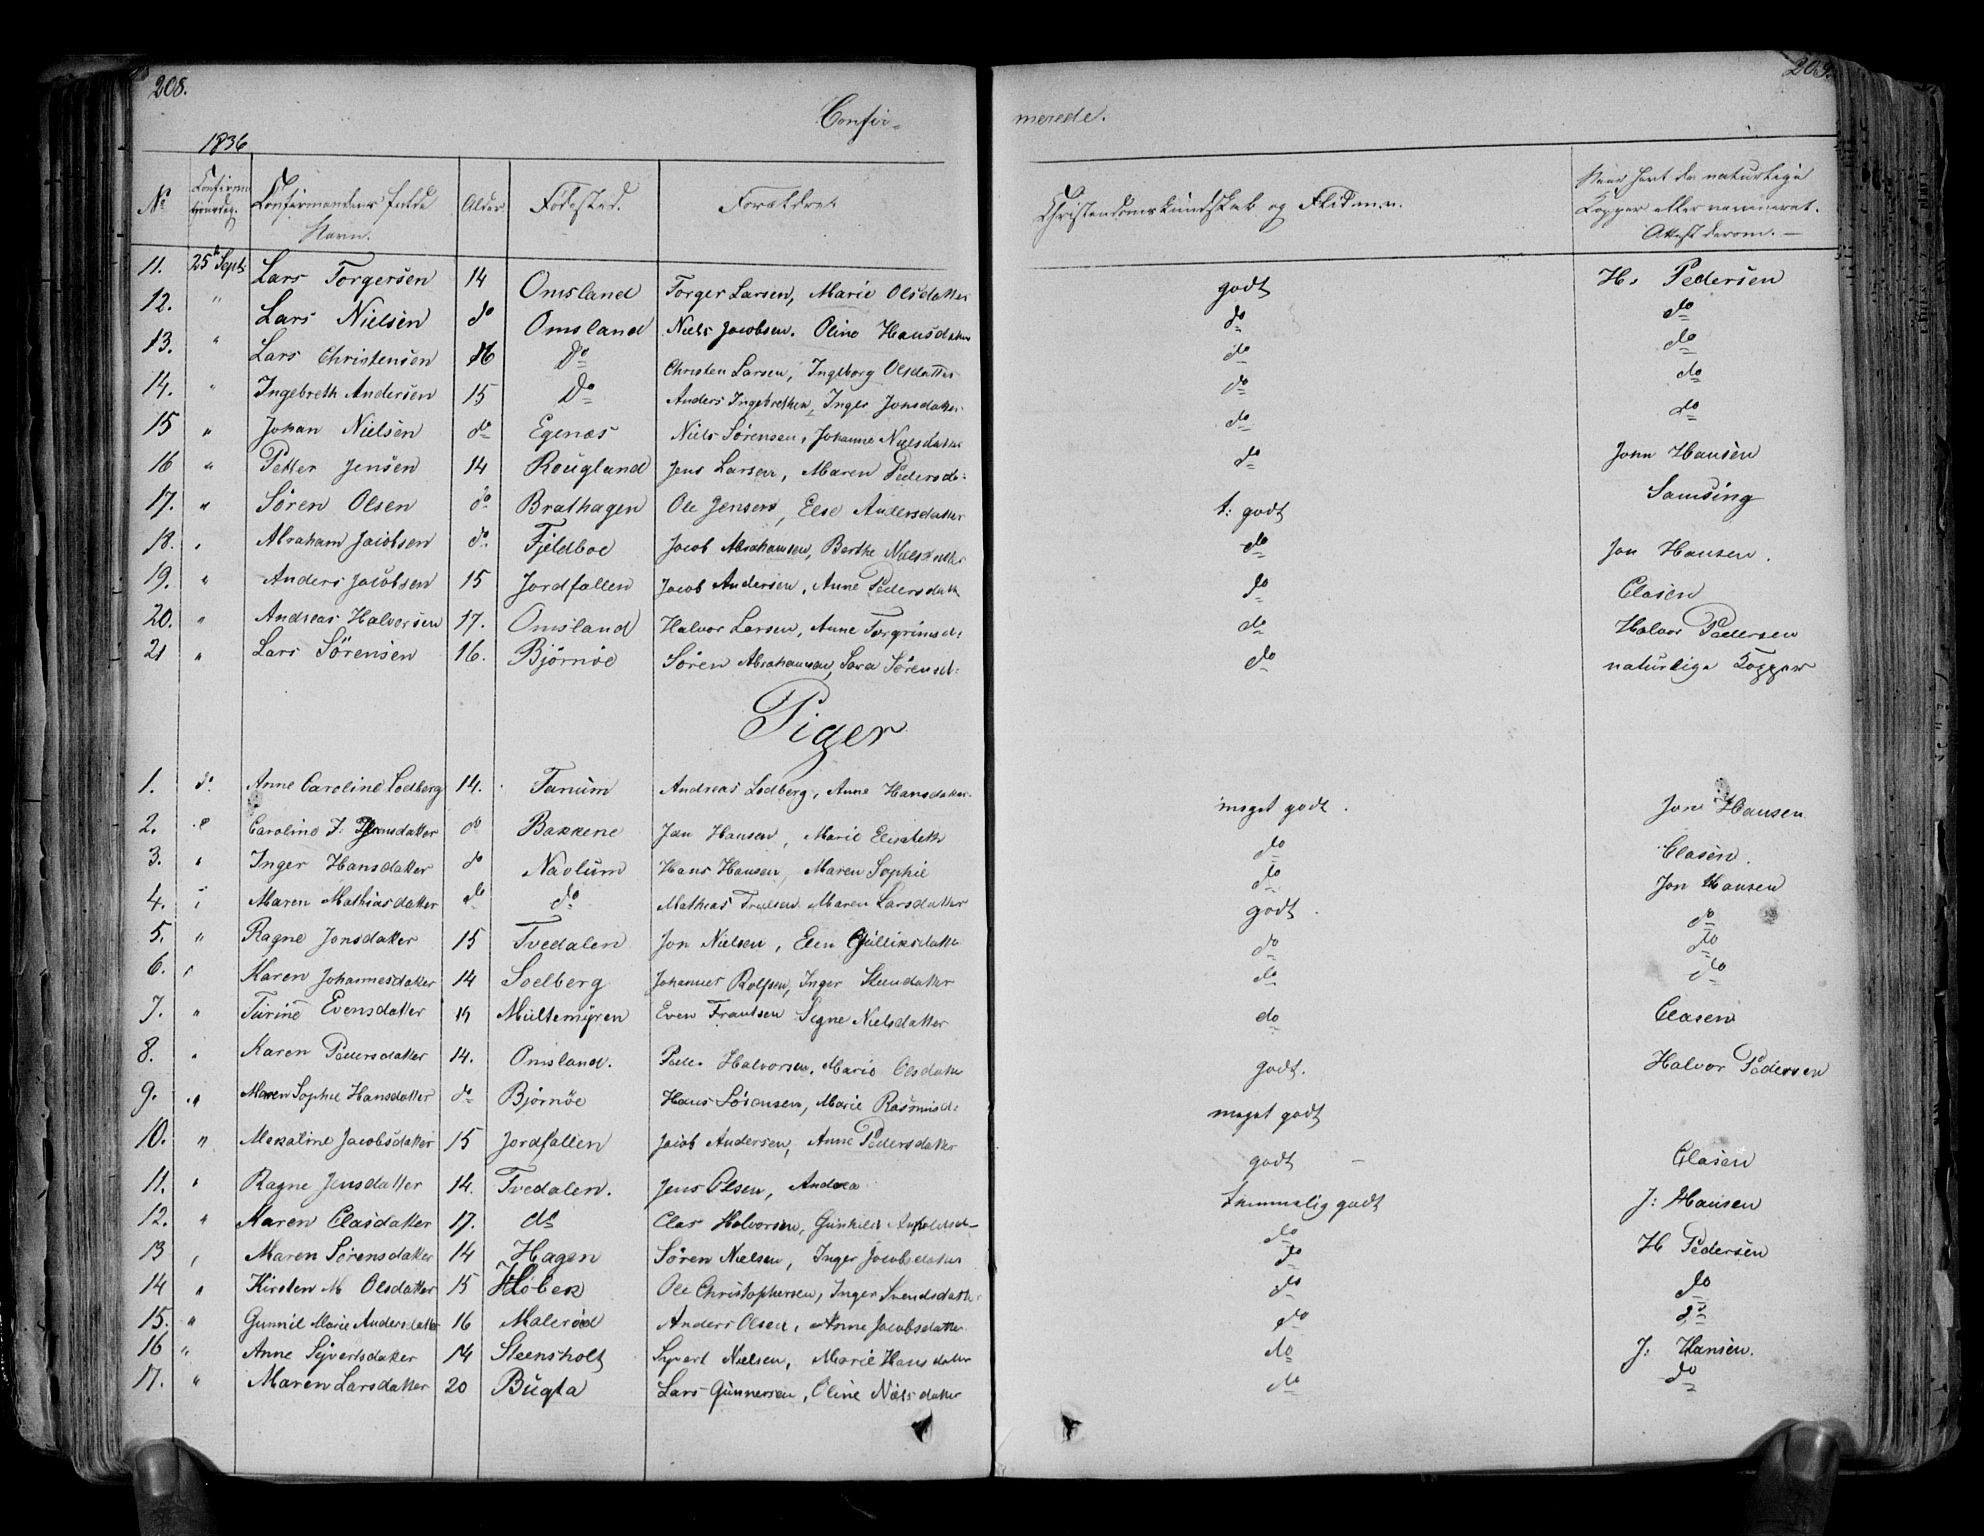 208.
209.
Confir-
merede.
1836
No
Confirma-
tionsdag.
Confirmandens fulde
Navn.
Alder
Fødested.
Forældre
Christendomskundskab og Flid m.v.
Naar havt de naturlige
Kopper eller vaccineret.
Attest derom. —
11. 25de Septr Lars Torgersen 14 Omsland Torger Larsen, Marie Olsdatter godt H. Pedersen
12. " Lars Nielsen do Omsland Niels Jacobsen. Oline Hansdatter do do
13. " Lars Christensen 16 Do Christen Larsen, Ingeborg Olsdatter do do
14. " Ingebreth Andersen 15 Do Anders Ingebrethsen, Inger Jonsdatter do do
15 " Johan Nielsen do Egenæs Niels Sørensen, Johanne Nielsdatter do do
16 " Petter Jensen 14 Rougland Jens Larsen, Maren Pedersd: do John Hansen
17. " Søren Olsen do Brathagen Ole Jensen, Else Andersdatter t: godt Samsing
18. " Abraham Jacobsen do Fjeldboe Jacob Abrahamsen, Berthe Nielsdatter do Jon Hansen.
19. " Anders Jacobsen 15 Jordfallen Jacob Andersen, Anne Pedersdatt do Clasen
20. " Andreas Halvorsen 17. Omsland Halvor Larsen, Anne Torgrimsd: do Halvor Pedersen
21 " Lars Sørensen 16. Bjørnøe Søren Abrahamsen, Sara Sørensd: do naturlige Kopper
Piger
1. do Anne Caroline Lodberg 14. Tanum Andreas Lodberg, Anne Hansdatter meget godt. Jon Hansen
2. " Caroline J: Jansdatter do Bakkene Jan Hansen, Marie Elisabeth do Clasen.
3. " Inger Hansdatter do Navlum Hans Hansen, Maren Sophie do Jon Hansen
4. " Maren Mathiasdatter do do Mathias Truelsen Maren Larsdatter godt. do
5. " Ragne Jonsdatter 15 Tvedalen Jon Nielsen, Elen Gulliksdatter do do
6. " Karen Johannesdatter 14 Soelberg Johannes Rolfsen, Inger Steendatter do do
7. " Turine Evensdatter Multemyren Even Frantsen Segne Nielsdatter do Clasen
8. " Karen Pedersdatter 14. Omsland. Peder Halvorsen, Marie Olsdatter godt. Halvor Pedersen
9. " Maren Sophie Hansdatter do Bjørnøe Hans Sørensen, Marie Rasmusd: meget godt
10. " Mekaline Jacobsdatter 15 Jordfallen Jacob Andersen, Anne Pedersdatter godt — Clasen
11. " Ragne Jensdatter 14. Tvedalen. Jens Olsen, Andrea temmelig godt J: Hansen
12. " Maren Clasdatter 17. do Clas Halvorsen, Gunhild do H Pedersen
13 " Maren Sørensdatter 14 Hagen Søren Nielsen, Inger Jacobsdatter do
14 " Kirsten M Olsdatter 15 Holbek Ole Christophersen, Inger Svendsdatter do do
15. " Gunnil Marie Andersdatter 16 Malerød Anders Olsen, Anne Jacobsdatter do do
16 " Anne Syvertsdatter 14 Steensholt Syvert Nielsen, Marie Hansdatter do J: Hansen.
17. " Maren Larsdatter 20 Bugta Lars Gunnersen, Oline Nielsdatter do do